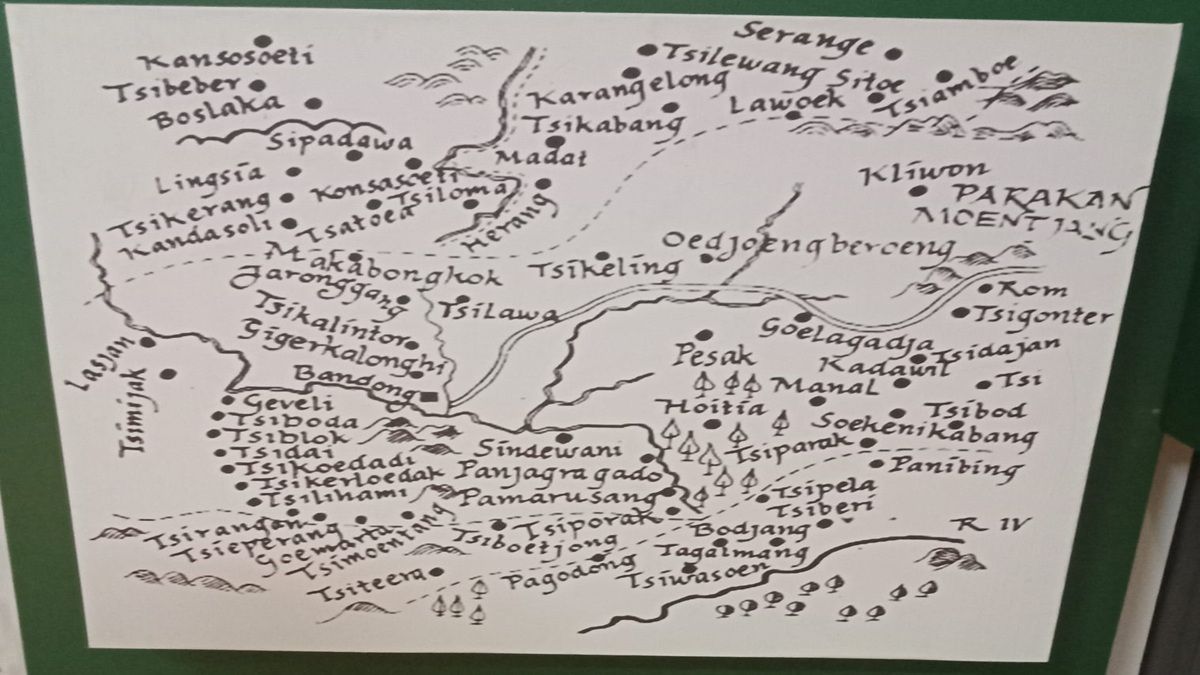 Kansosoeti
Tsibeber
Boslaka
Sipadawa
Lingsia
Tsikerang
Kandasoli
Konsasoeti
Tsatoea
Tsiloma
Herang
Madat
Tsikabang
Karangelong
Tsilewang
Serange
Sitoe
Lawoek
Tsiamboe
Kliwon
PARAKAN
MOENTJANG
Makabongkok
Jaronggang
Tsikalintor
Gigerkalonghi
Bandong
Tsilawa
Tsikeling
Oedjoengberoeng
Rom
Tsigonter
Goelagadja
Tsidajan
Kadawil
Tsi
Pesak
Manal
Lasjan
Tsimijak
Hoitia
Soekenikabang
Tsibod
Tsiparak
Panibing
Geveli
Tsiboda
Tsiblok
Tsidai
Tsikoedadi
Tsikerloedak
Tsilihami
Sindewani
Panjagragado
Pamarusang
Tsipela
Tsiberi
Tsirangan
Tsieperang
Goemarta
Tsimoentang
Tsiboetjong
Tsiporak
Bodjang
Tagalmang
Tsiwasoen
Pagodong
Tsiteera
R IV